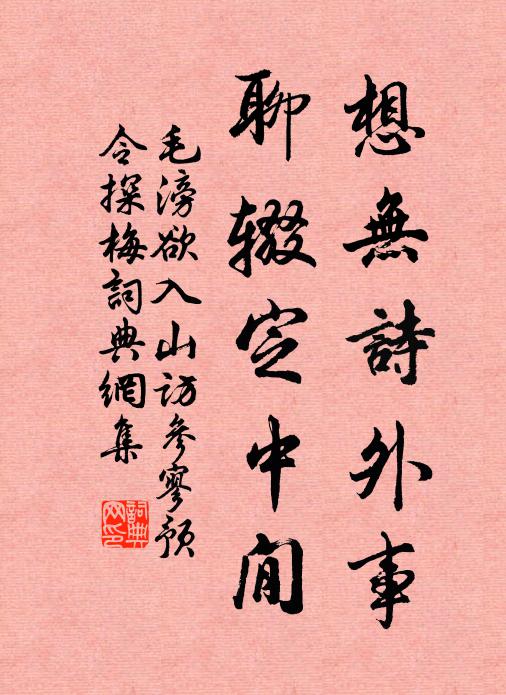 想無詩外事
聊輟定中閒
毛滂欲入山訪參寥預
令探梅詞典網集
詞典网印